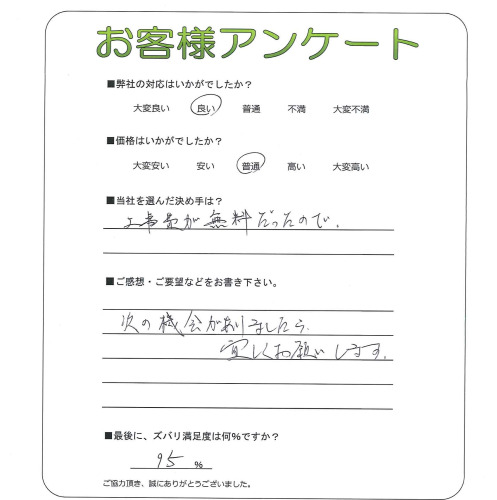 お客様アンケート
■弊社の対応はいかがでしたか？
大変良い 良い 普通 不満 大変不満
■価格はいかがでしたか？
大変安い 安い 普通 高い 大変高い
■当社を選んだ決め手は？
工事費が無料だったので、
■ご感想・ご要望などをお書き下さい。
次の機会がありましたら
宜しくお願いします。
■最後に、ズバリ満足度は何%ですか？
95 %
ご協力頂き、誠にありがとうございました。